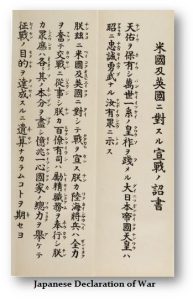 米國及英國ニ對スル宣戰ノ詔書
天佑ヲ保有シ萬世一系ノ皇祚ヲ踐メル大日本帝國天皇ハ
昭ニ忠誠勇武ナル汝有衆ニ示ス
朕茲ニ米國及英國ニ對シテ戰ヲ宣ス朕カ陸海將兵ハ全力
ヲ奮テ交戰ニ從事シ朕カ百僚有司ハ勵精職務ヲ奉行シ朕
カ衆庶ハ各〻其ノ本分ヲ盡シ億兆一心國家ノ總力ヲ擧ケテ
征戰ノ目的ヲ達成スルニ遺算ナカラムコトヲ期セヨ
Japanese Declaration of War